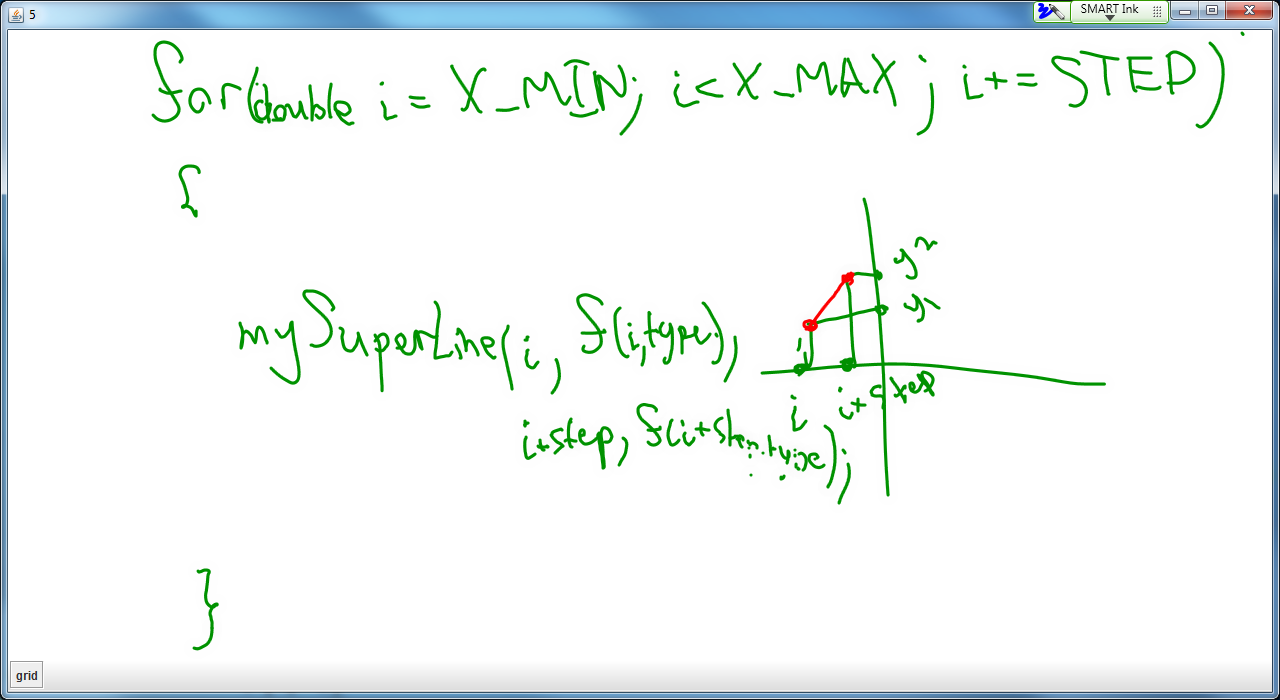 5
SMART Ink
for(double i = X_MIN; i < X_MAX; i += STEP)
{
mySuperLine(i, f(i,type),
i+step, f(i+step,type);
y2
y1
i
i+step
}
grid